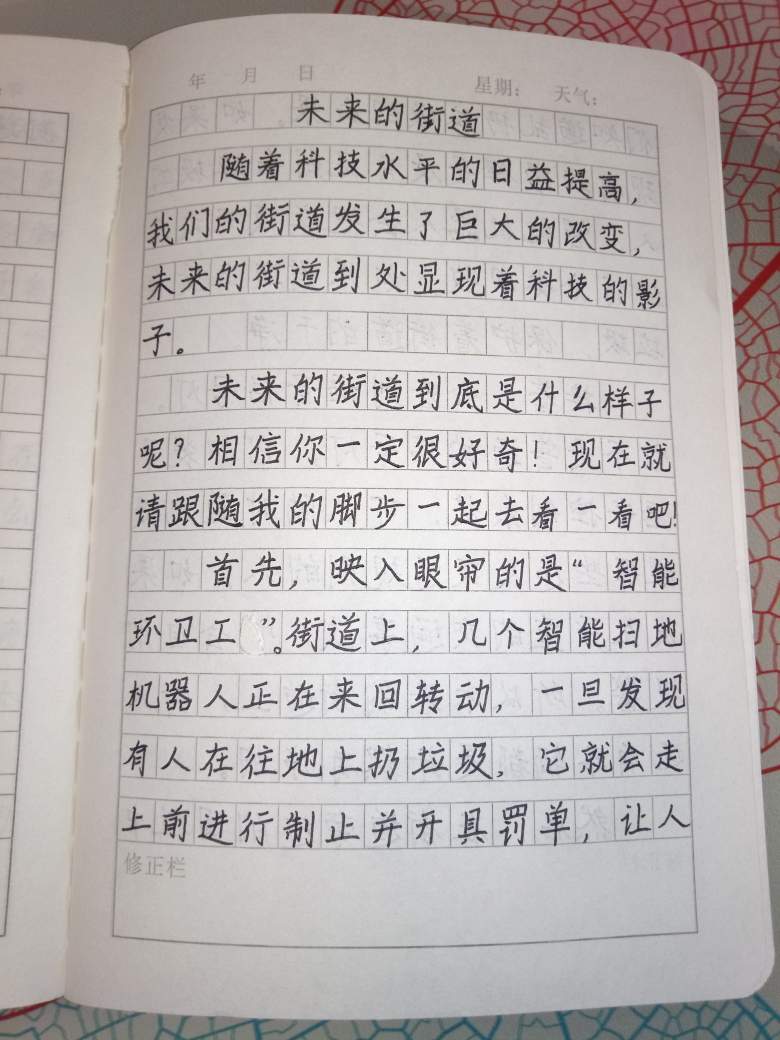 年 月 日 星期： 天气：
未来的街道
随着科技水平的日益提高，
我们的街道发生了巨大的改变，
未来的街道到处显现着科技的影
子。
未来的街道到底是什么样子
呢？相信你一定很好奇！现在就
请跟随我的脚步一起去看一看吧！
首先，映入眼帘的是“智能
环卫工”。街道上，几个智能扫地
机器人正在来回转动，一旦发现
有人在往地上扔垃圾，它就会走
上前进行制止并开具罚单，让人
修正栏